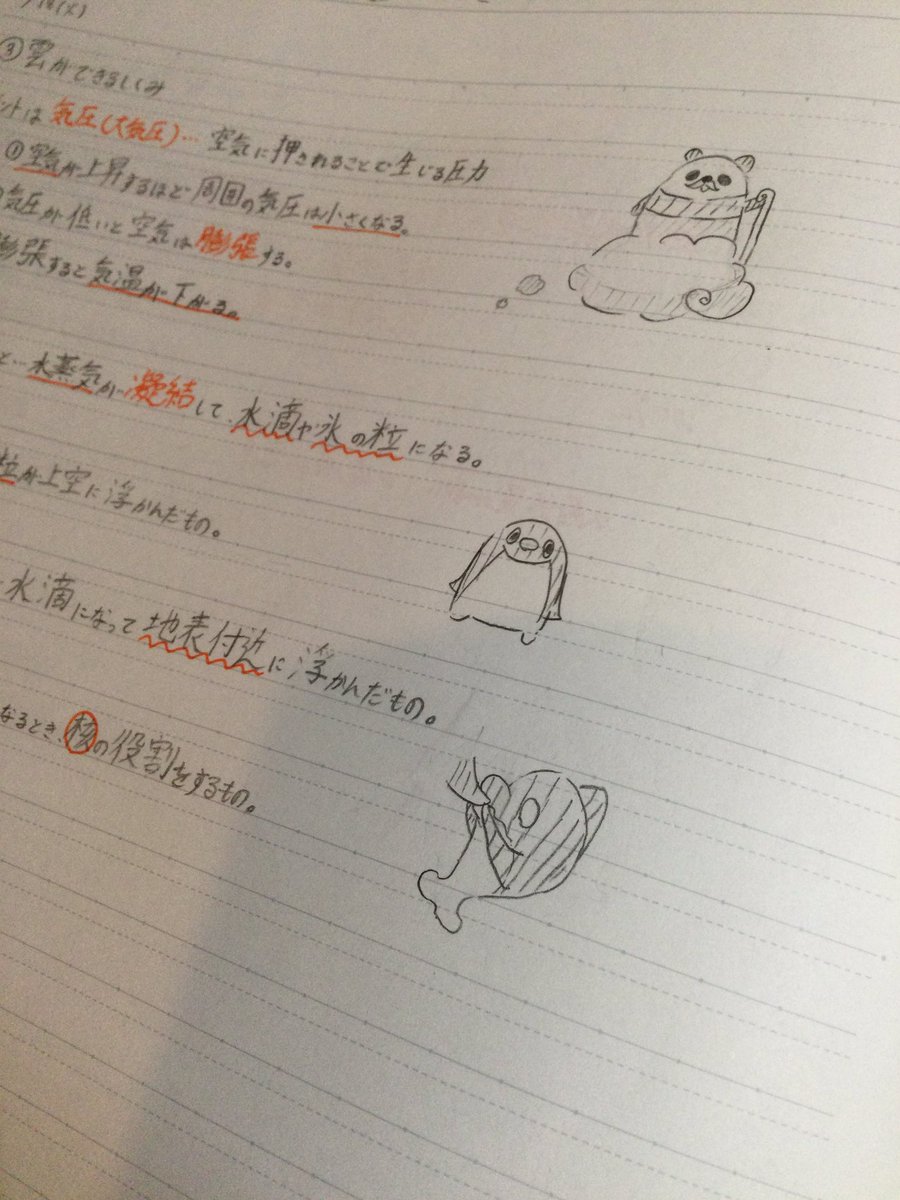 ③雲ができるしくみ
ントは気圧(大気圧)… 空気に押されることで生じる圧力
①空気が上昇するほど周囲の気圧は小さくなる。
気圧が低いと空気は膨張する。
膨張すると気温が下がる。
と…水蒸気が凝結して、水滴や氷の粒になる。
粒が上空に浮かんだもの。
水滴になって地表付近に浮かんだもの。
なるとき、核の役割をするもの。